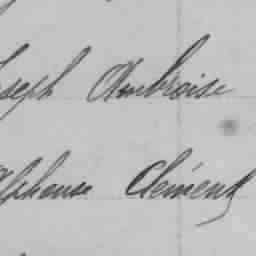 Joseph Ambroise
Alphonse Clément